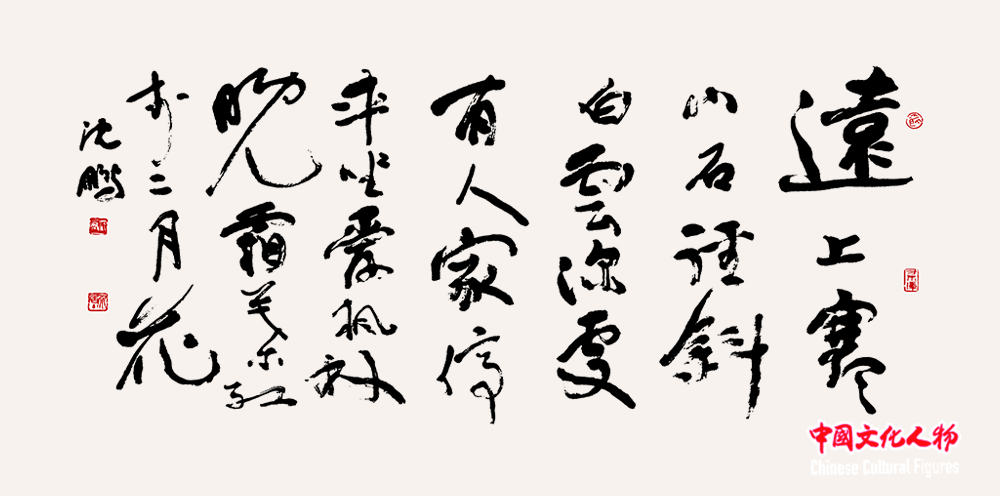 遠上寒
山石徑斜
白雲深處
有人家停
車坐愛楓林
晚霜葉紅
於二月花
沈鵬
中國文化人物
Chinese Cultural Figures